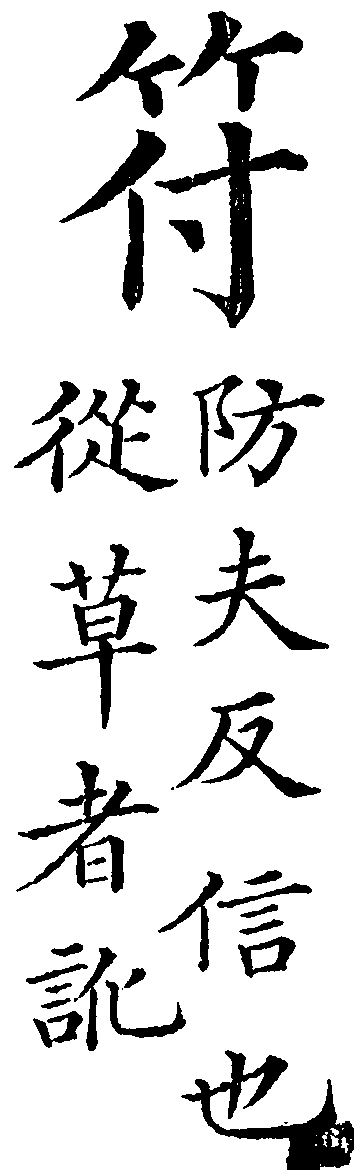 符
防夫反信也
從草者訛